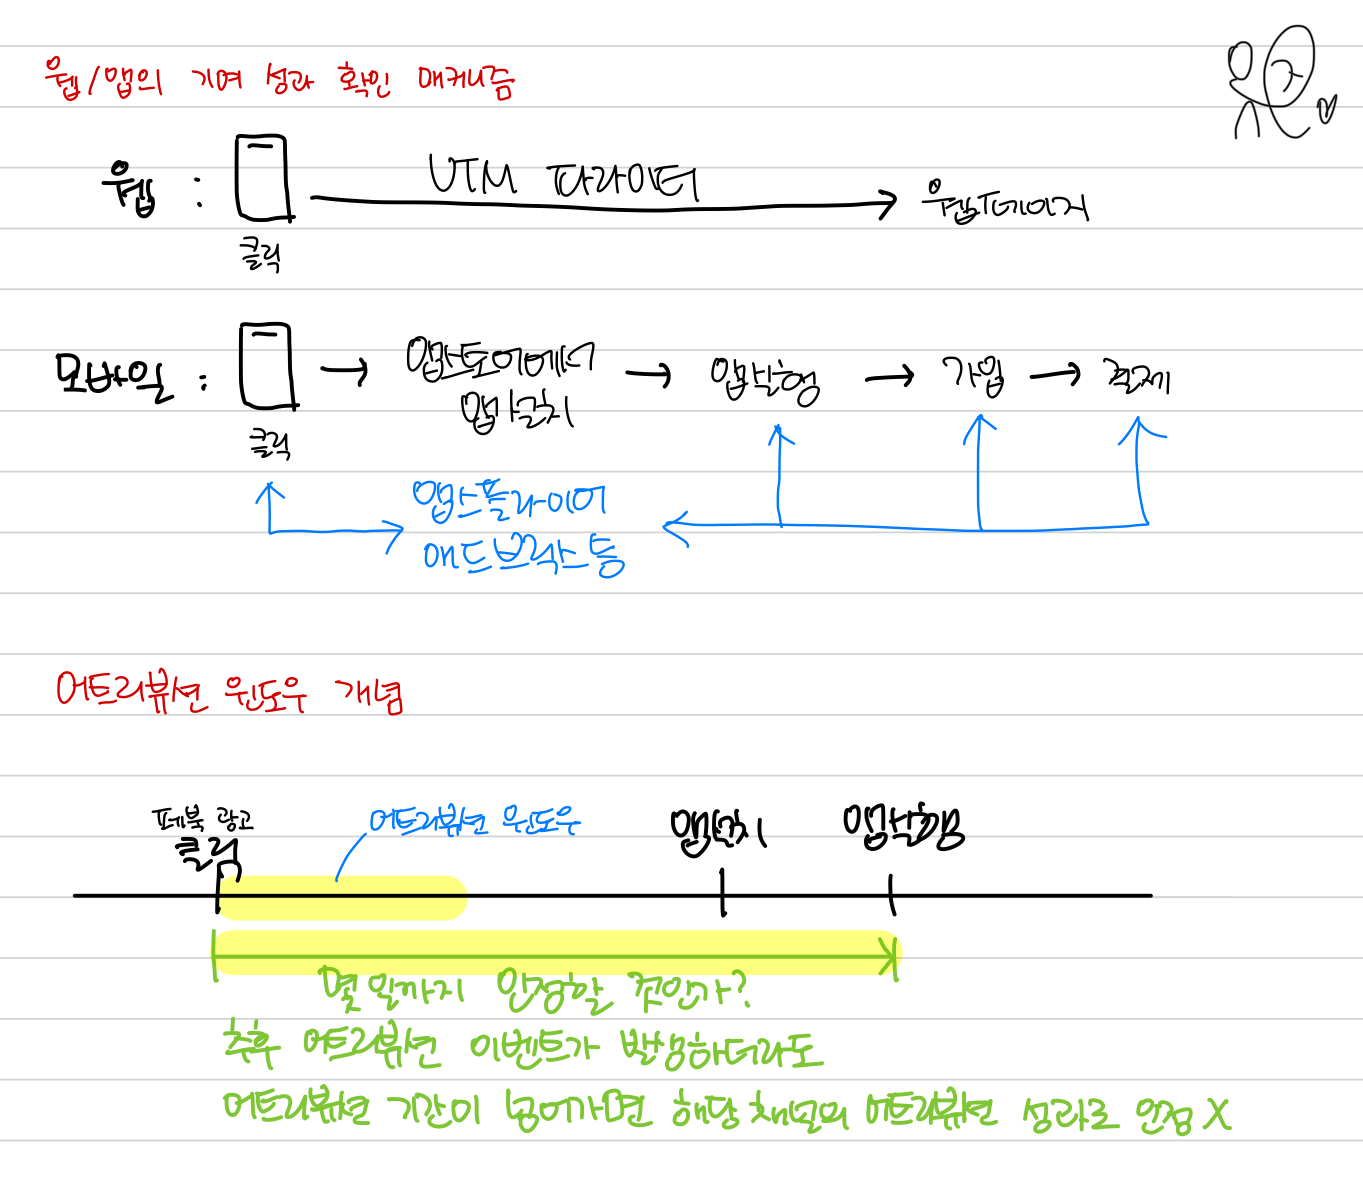 웹/앱의 기여 성과 확인 매커니즘
웹 : UTM 파라미터 → 웹페이지
클릭
모바일 : → 앱스토어에서 앱설치 → 앱실행 → 가입 → 결제
클릭
앱스플라이어
애드브릭스 등
어트리뷰션 윈도우 개념
페북 광고 클릭
어트리뷰션 윈도우
앱설치
앱실행
몇 일까지 인정할 것인가?
추후 어트리뷰션 이벤트가 발생하더라도
어트리뷰션 기간이 넘어가면 해당 채널의 어트리뷰션 성과로 인정 X